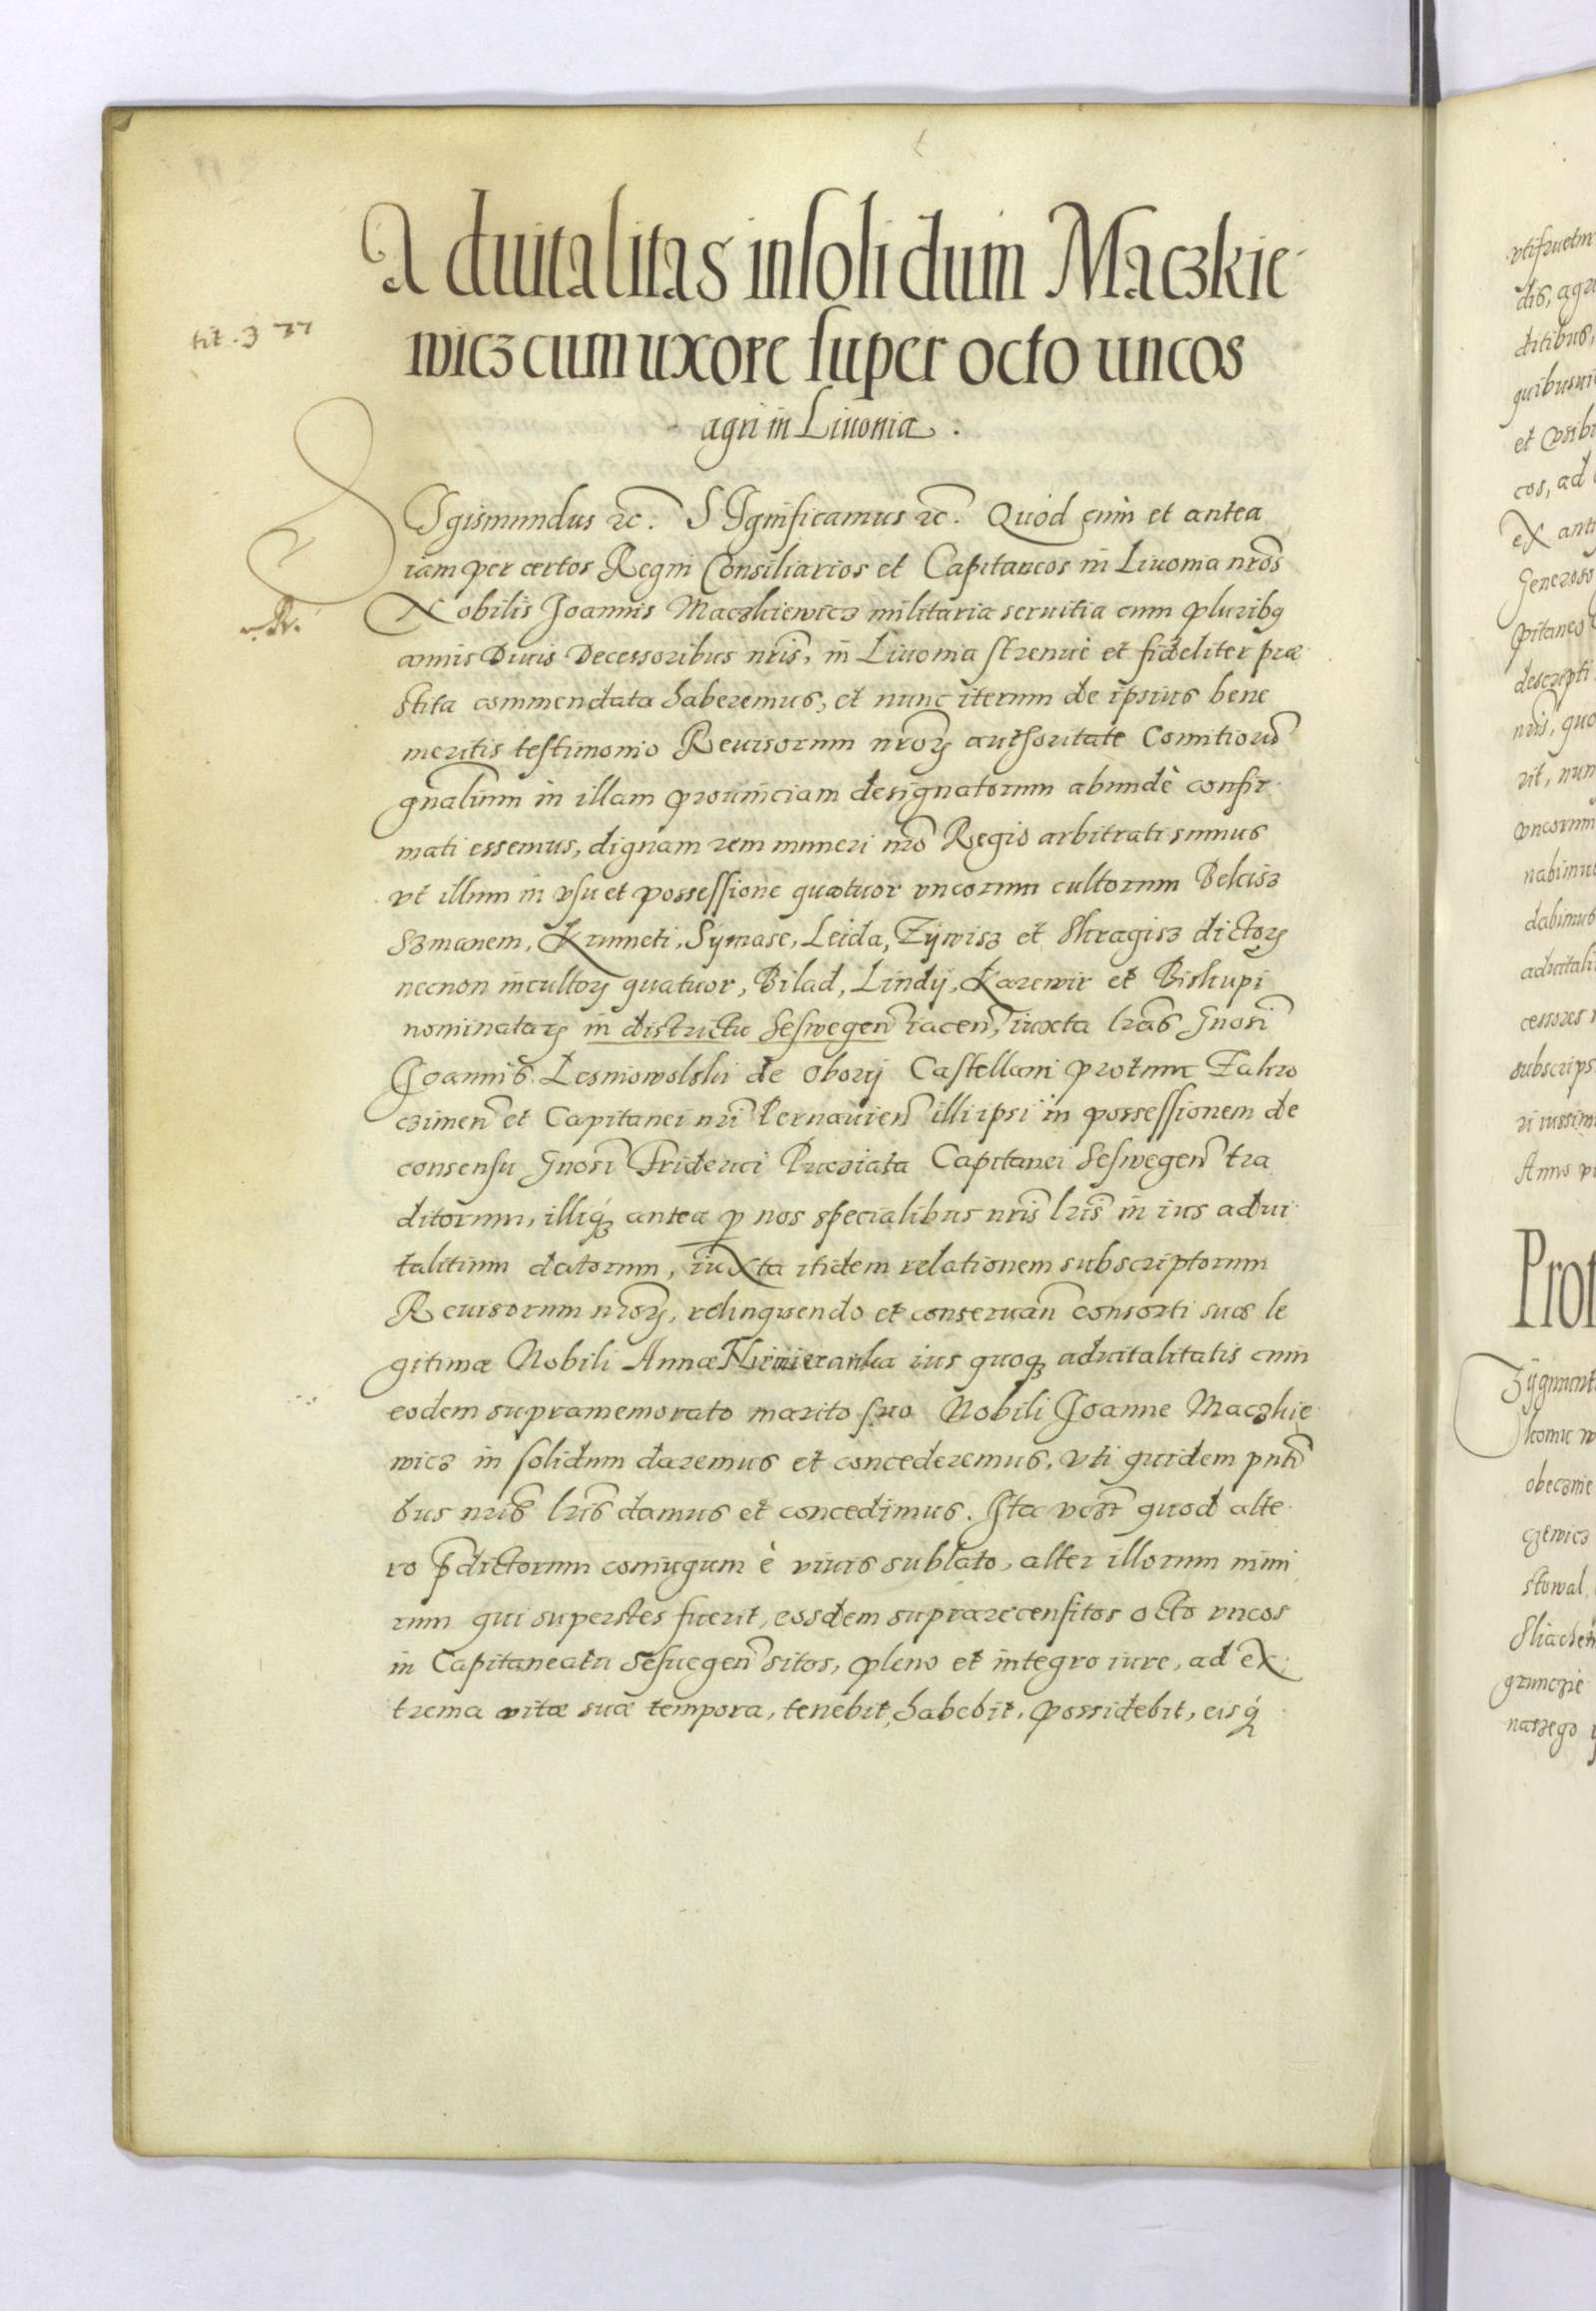 Aduitalitas in solidum Maczkie-
wicz cum uxore super octo uncos
agri in Liuonia.
tit. 3
SIgismundus &c. SIgnificamus &c. Quòd cùm et antea
iam per certos Regni Consiliarios et Capitaneos in Liuonia nr̃os
Nobilis Joannis Maczkiewicz militaria seruitia cum pluribꝯ
annis Diuis Decessoribus nr̃is, in Liuonia strenuè et fideliter præ
stita commendata haberemus, et nunc iterum de ipsius bene
meritis testimonio Reuisorum nr̃oꝝ authoritate Comitioru͂
gn̄alium in illam prouinciam designatorum abundè confir-
mati essemus, dignam rem muneri nr̃o Regio arbitrati sumus
vt illum in vsu et possessione quatuor vncorum cultorum Belcisz
Szmanem, Krumeti, Symase, Leida, Zÿwisz et Skragisz dictoꝝ
necnon incultoꝝ quatuor, Bilad, Lindÿ, Karewir et Biskupi
nominatoꝝ in districtu Seswegen̄ iacen̄, iuxta lr̃as Gnosi
Joannis Lesniowolski de Oborÿ Castellani protunc Zakro
czimen̄ et Capitanei nr̃i Pernauien̄ illi ipsi in possessionem de
consensu Gnosi Friderici Pucziata Capitanei Seswegen̄ tra
ditorum, illiqꝫ antea ꝑ nos specialibus nr̃is lr̃is in ius adui-
talitium datorum, iuxta itidem relationem subscriptorum
Reuisorum nr̃oꝝ, relinquendo et conseruan̄ consorti suæ le
gitimæ Nobili Annæ ius quoqꝫ aduitalitatis cum
eodem supramemorato marito suo Nobili Joanne Maczkie-
wicz in solidum daremus et concederemus, vti quidem pn̄ti
bus nr̃is lr̃is damus et concedimus. Ita quod alte-
ro p̄dictorum coniugum è viuis sublato, alter illorum nimi
rum qui superstes fuerit, eosdem suprarecensitos octo vncos
in Capitaneatu Sesuegen̄ sitos, pleno et integro iure, ad ex-
trema vitæ suæ tempora, tenebit, habebit, possidebit, eisqꝫ